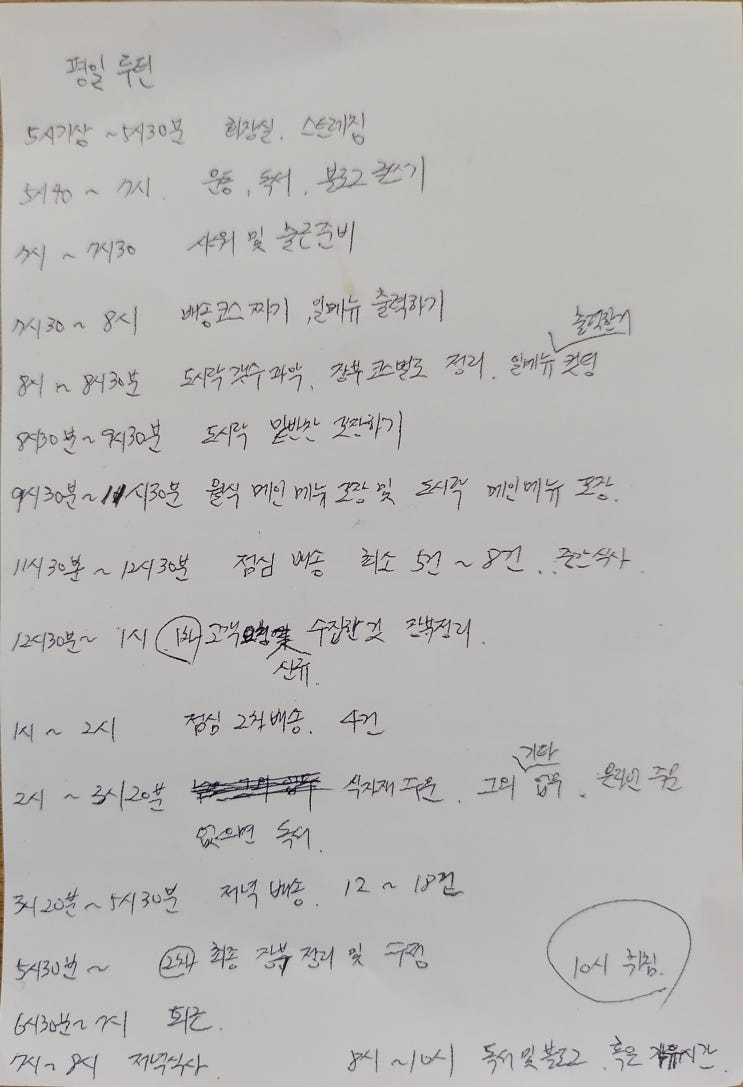 평일 루틴
5시기상 ~ 5시30분 화장실. 스트레칭
5시40 ~ 7시. 운동, 독서, 블로그 글쓰기
7시 ~ 7시30 샤워 및 출근준비
7시30 ~ 8시 배송코스 짜기, 일메뉴 출력하기
출력한거
8시 ~ 8시30분 도시락 갯수 파악, 장부 코스별로 정리. 일메뉴 컷팅
8시30분 ~ 9시30분 도시락 밑반찬 포장하기
9시30분 ~ 11시30분 월식 메인 메뉴 포장 및 도시락 메인메뉴 포장.
11시30분 ~ 12시30분 점심 배송 최소 5건 ~ 8건. 중간식사.
12시30분 ~ 1시 1차 고객 수집한 것 장부정리.
1시 ~ 2시 점심 2차배송. 4건
기타
2시 ~ 3시20분 식자재 주문. 그외 업무. 온라인 주문
없으면 독서.
3시20분 ~ 5시30분 저녁 배송. 12 ~ 18건
5시30분 ~ 2차 최종 장부 정리 및 수정
10시 취침.
6시30분 ~ 7시 퇴근.
7시 ~ 8시 저녁식사. 8시 ~ 10시 독서 및 블로그. 혹은 시간.